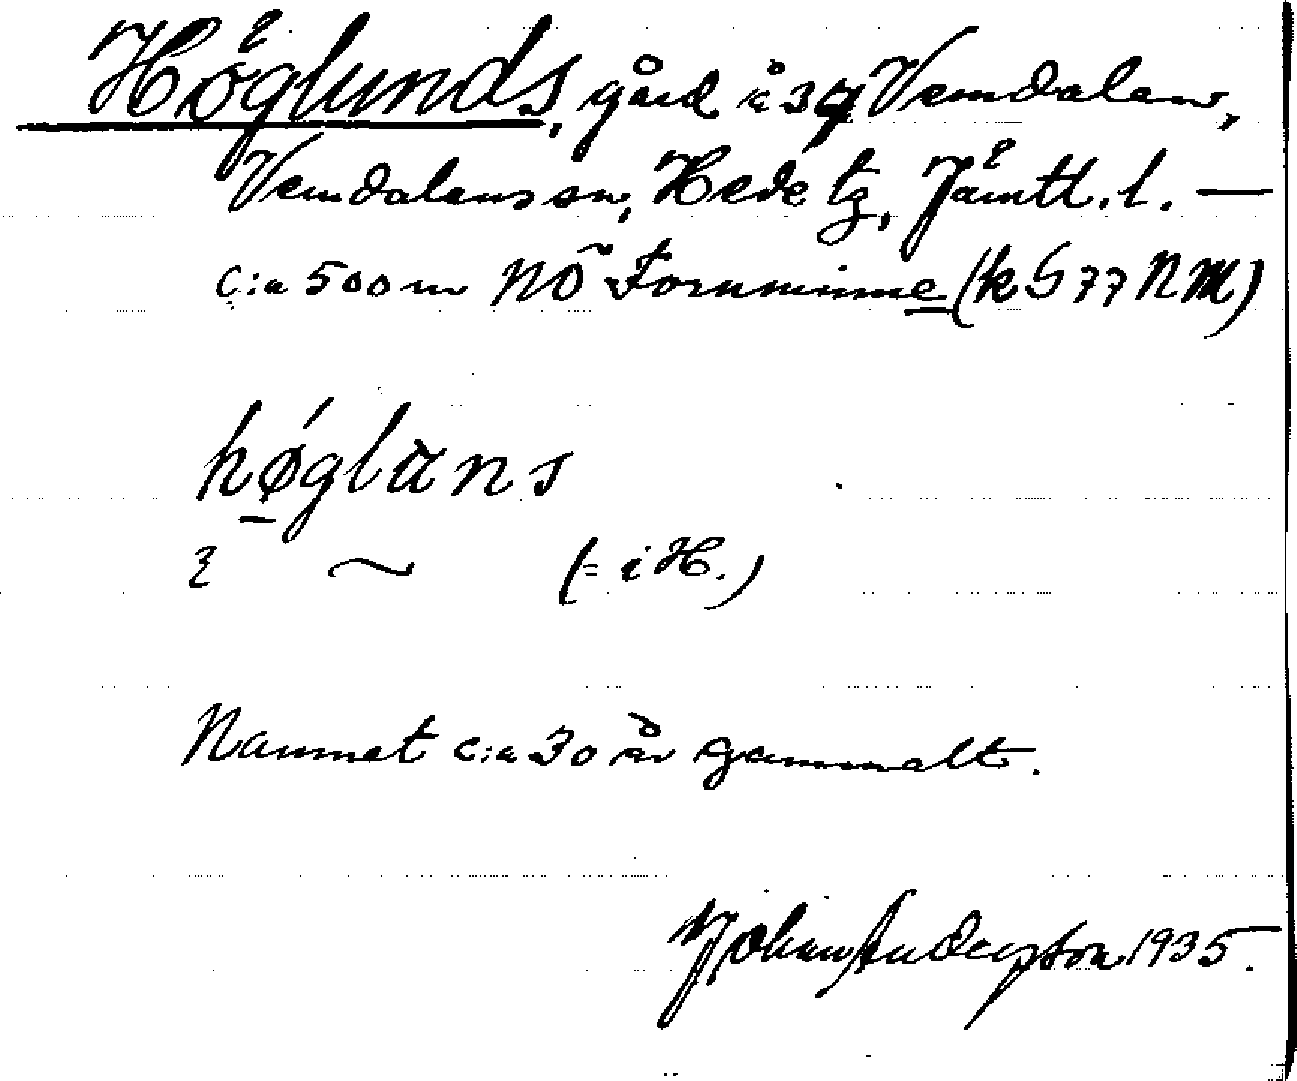 Höglunds, gård å 3⁴ Vemdalen,
Vemdalens sn, Hede tg, Jämtl. l. —
c:a 500 m NÖ Fornminne (k G 77 NM)
høglans
~ (= i H.)
Namnet c:a 30 år gammalt.
Johan Andersson 1935.